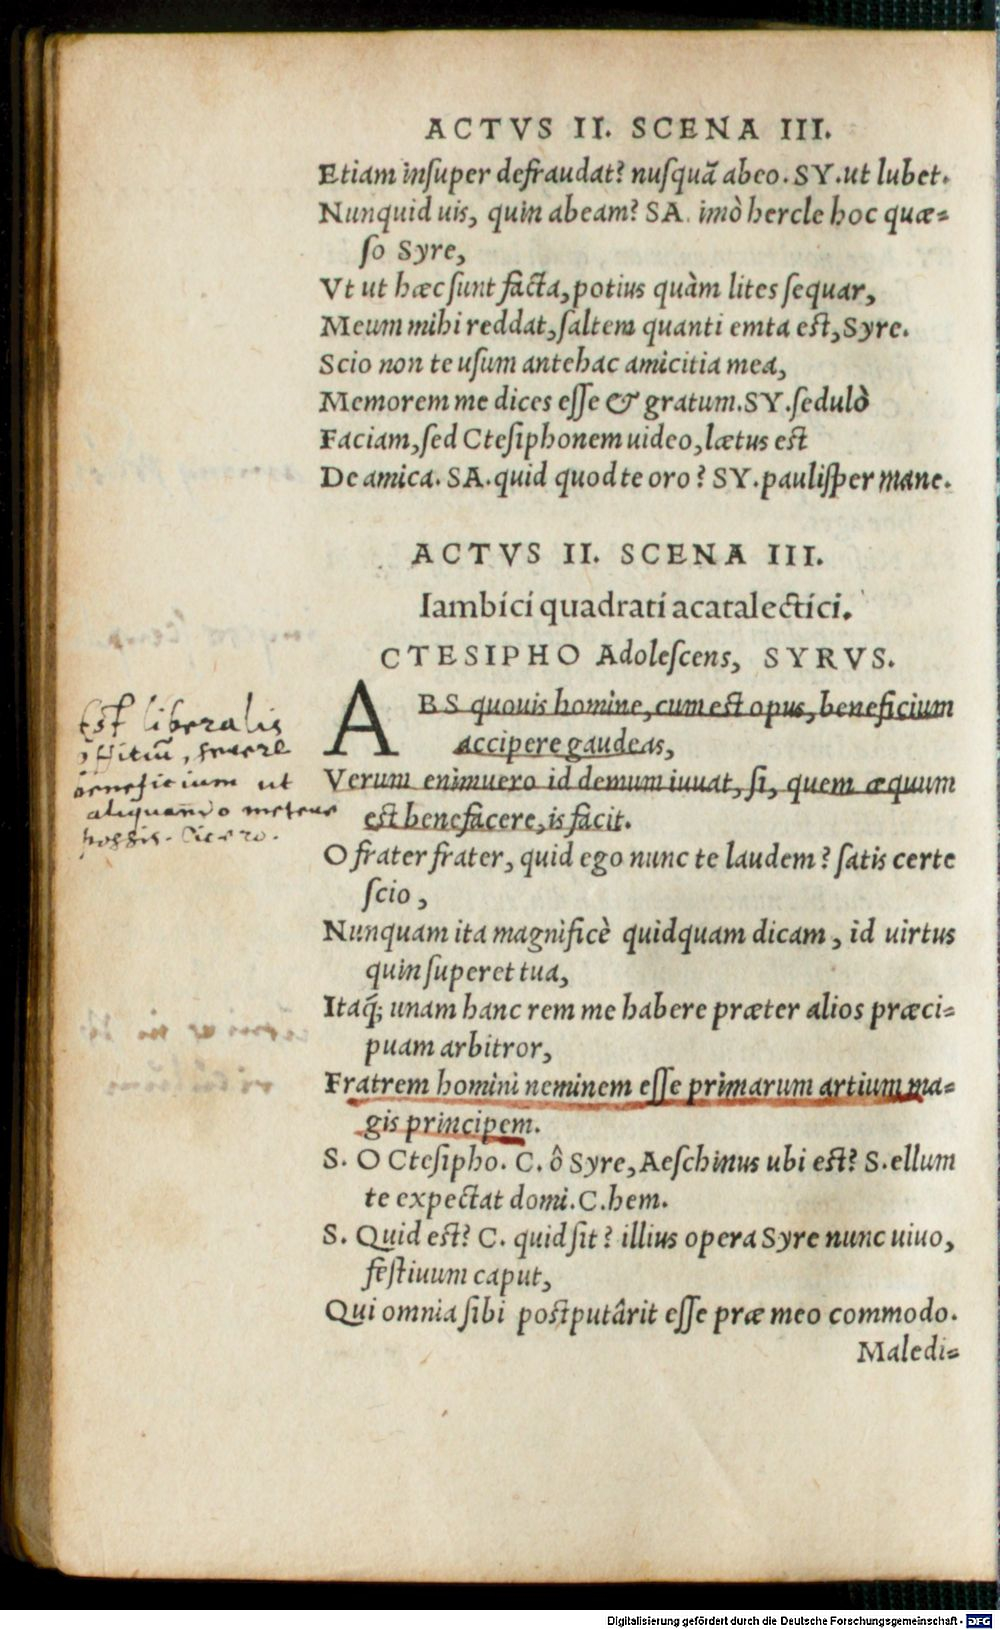 ACTVS II. SCENA III.
Etiam insuper defraudat? nusquã abeo. SY. ut lubet.
Nunquid uis, quin abeam? SA. imò hercle hoc quæ=
so Syre,
Vt ut hæc sunt facta, potius quàm lites sequar,
Meum mihi reddat, saltem quanti emta est, Syre.
Scio non te usum antehac amicitia mea,
Memorem me dices esse & gratum. SY. sedulò
Faciam, sed Ctesiphonem uideo, lætus est
De amica. SA. quid quod te oro? SY. paulisper mane.
ACTVS II. SCENA III.
Iambici quadrati acatalectici.
CTESIPHO Adolescens, SYRVS.
ABS quouis homine, cum est opus, beneficium
accipere gaudeas,
Verum enimuero id demum iuuat, si, quem æquum
est benefacere, is facit.
O frater frater, quid ego nunc te laudem? satis certe
scio,
Nunquam ita magnificè quidquam dicam, id uirtus
quin superet tua,
Itaq; unam hanc rem me habere præter alios præci=
puam arbitror,
Fratrem homini neminem esse primarum artium ma=
gis principem.
S. O Ctesipho. C. ô Syre, Aeschinus ubi est? S. ellum
te expectat domi. C. hem.
S. Quid est? C. quid sit? illius opera Syre nunc uiuo,
festiuum caput,
Qui omnia sibi postputârit esse præ meo commodo.
Maledi=
Est liberalis
offitiũ, serere
beneficium ut
aliquando metere
possis. Cicero.
Digitalisierung gefördert durch die Deutsche Forschungsgemeinschaft - DFG